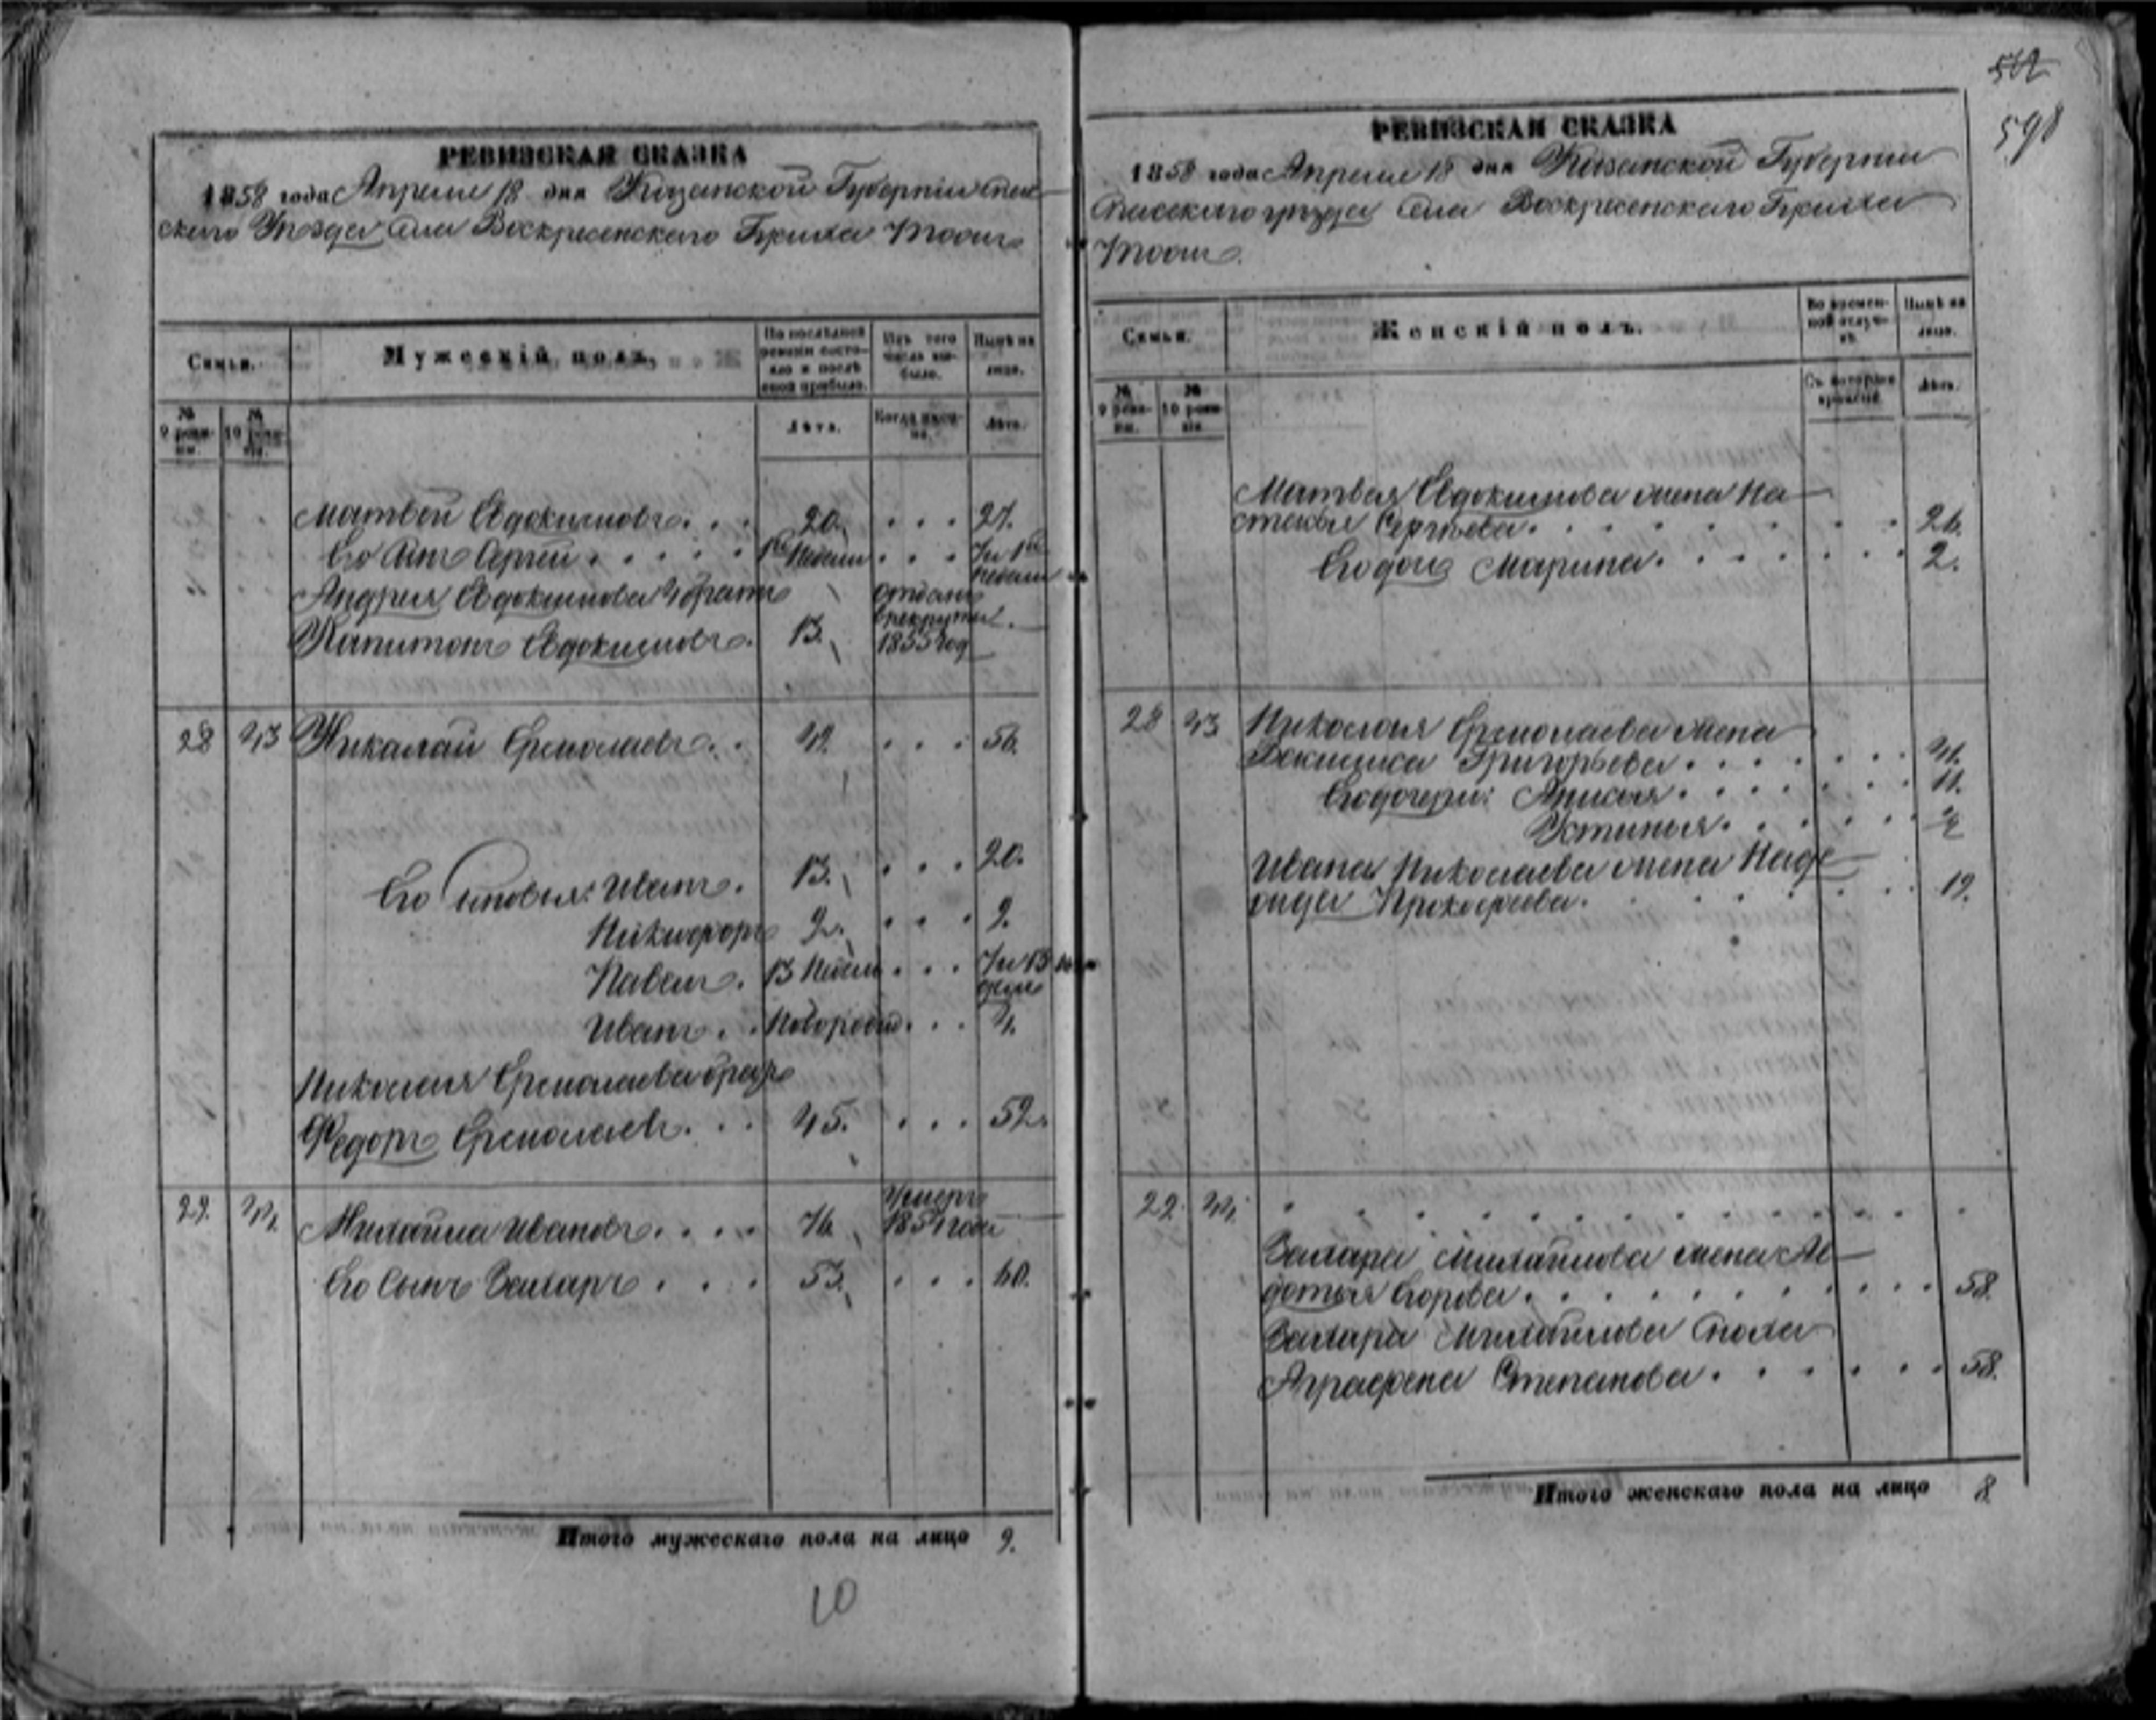 РЕВИЗСКАЯ СКАЗКА
1858 года Апреля 18 дня Казанской Губернии Спас
скаго Уезда Села Воскресенскаго Бряхта тоже
Семьи.
Мужескій полъ,
По последней ревизіи состояло и после оной прибыло.
Изъ того числа выбыло.
Ныне на лицо.
№ 9 ревизіи.
№ 10 ревизіи.
Лета.
Когда именно.
Лета.
Матвей Евдокимовъ 20. 27.
Его Сынъ Сергей недели недели
Андрея Евдокимова 4 братъ отданъ
Капитонъ Евдокимовъ 13. в рекруты 1855 год
28 43 Николай Ермолаевъ 49. 56.
Его сыновья: Иванъ. 13. 20.
Никифоръ 2. 9.
Павелъ. 13 недель
Иванъ. Новорожд. 7.
Николая Ермолаева братъ
Федоръ Ермолаевъ 45. 52.
29. 44. Михайла Ивановъ 76. Умеръ 1854 года
Его Сынъ Захаръ 53. 60.
Итого мужескаго пола на лицо 9.
10
562
598
РЕВИЗСКАЯ СКАЗКА
1858 года Апреля 18 дня Казанской Губернии
Спасскаго уезда Села Воскресенскаго
тоже
Семьи.
Женскій полъ.
Во временной отлучке.
Ныне на лицо.
№ 9 ревизіи.
№ 10 ревизіи.
Съ котораго времени.
Лета.
Матвея Евдокимова жена На
стасья Сергеева. 26.
Его дочь Марина. 2.
28 43 Николая Ермолаева жена
Григорьева 41.
Его дочери: Анисья. 11.
Устинья.
Ивана Николаева жена Наде
жда Прокофьева. 19.
29. 44.
Захара Михайлова жена Ав
дотья Егорова. 58.
Захара Михайлова сноха
Аграфена Степанова. 58.
Итого женскаго пола на лицо 8